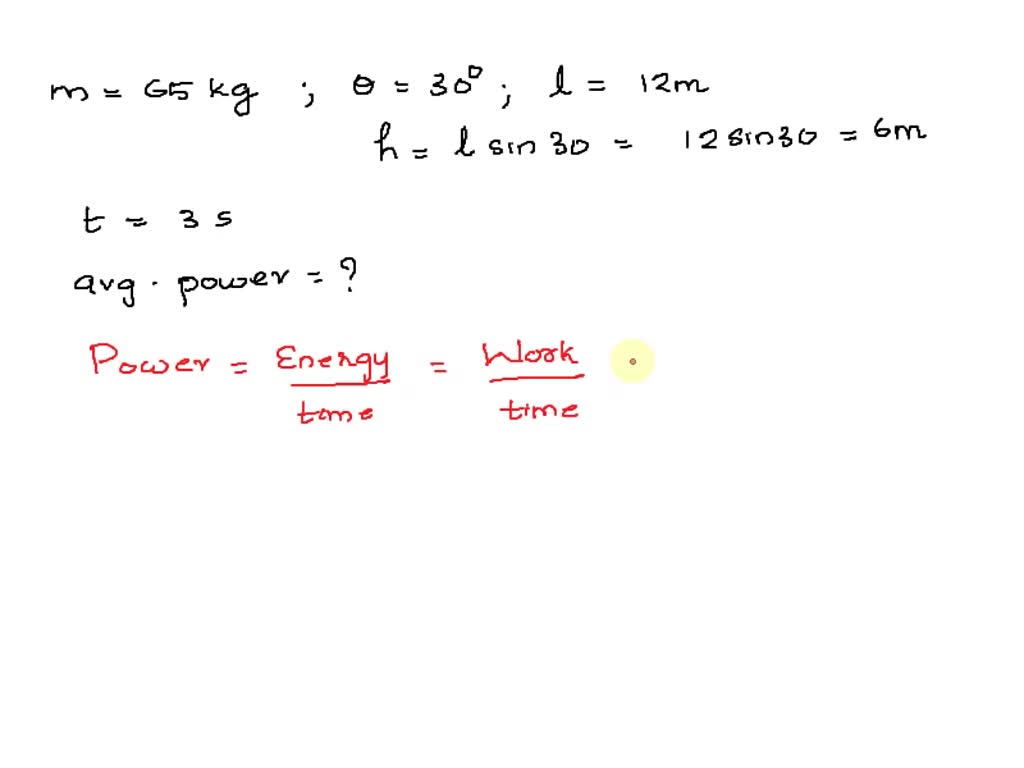 m = 65 kg ; θ = 30° ; l = 12m
h = l sin 30 = 12 sin 30 = 6m
t = 3 s
avg. power = ?
Power = Energy / time = Work / time